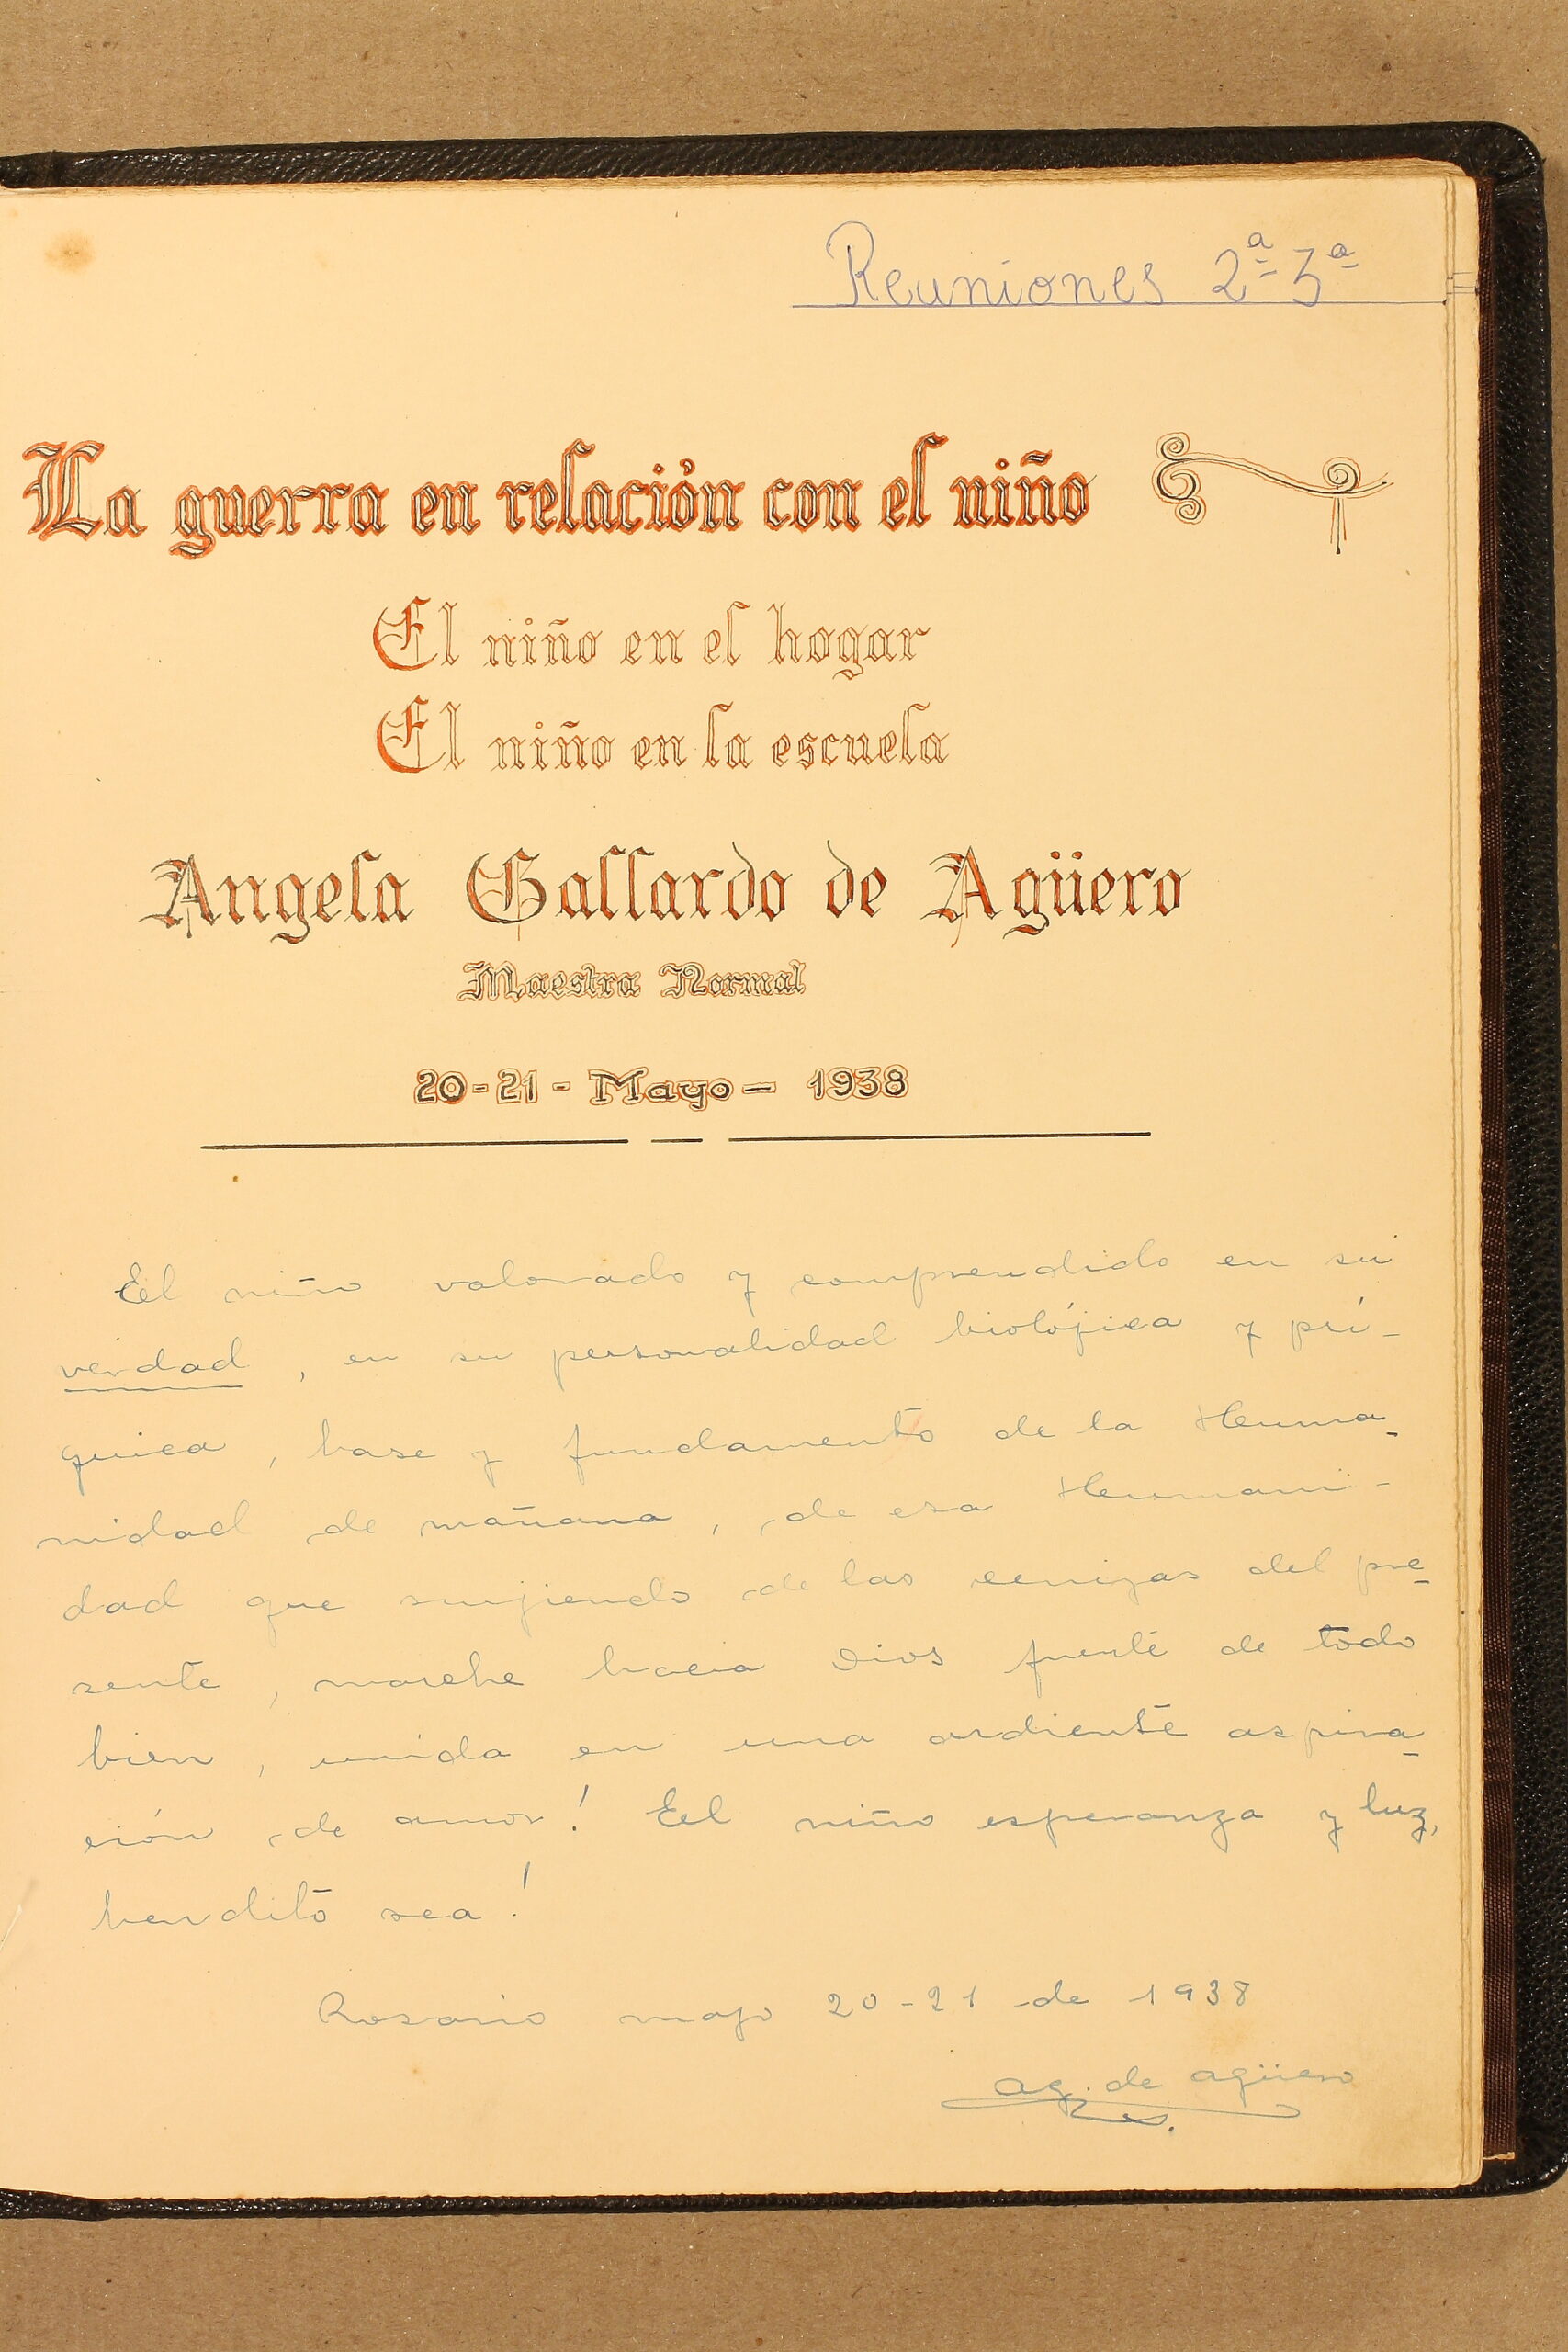 Reuniones 2ª 3ª
La guerra en relación con el niño
El niño en el hogar
El niño en la escuela
Angela Gallardo de Agüero
Maestra Normal
20-21 - Mayo - 1938
El niño valorado y comprendido en su
verdad, en su personalidad biolójica y psí-
quica, base y fundamento de la Huma-
nidad de mañana, de esa Humani-
dad que surjiendo de las cenizas del pre-
sente, marche hacia Dios fuente de todo
bien, unida en una ardiente aspira-
ción de amor! El niño esperanza y luz,
bendito sea!
Rosario mayo 20-21 de 1938
AG. de Agüero